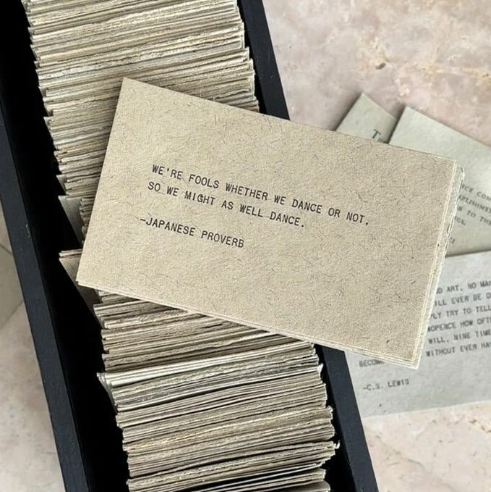 WE'RE FOOLS WHETHER WE DANCE OR NOT,
SO WE MIGHT AS WELL DANCE.
-JAPANESE PROVERB
T
CE COM
TO THE
D ART, NO MA
ALL EVER BE O
PLY TRY TO TELL
HOW OFT
WILL, NINE TIME
WITHOUT EVER HA
-C.S. LEWIS